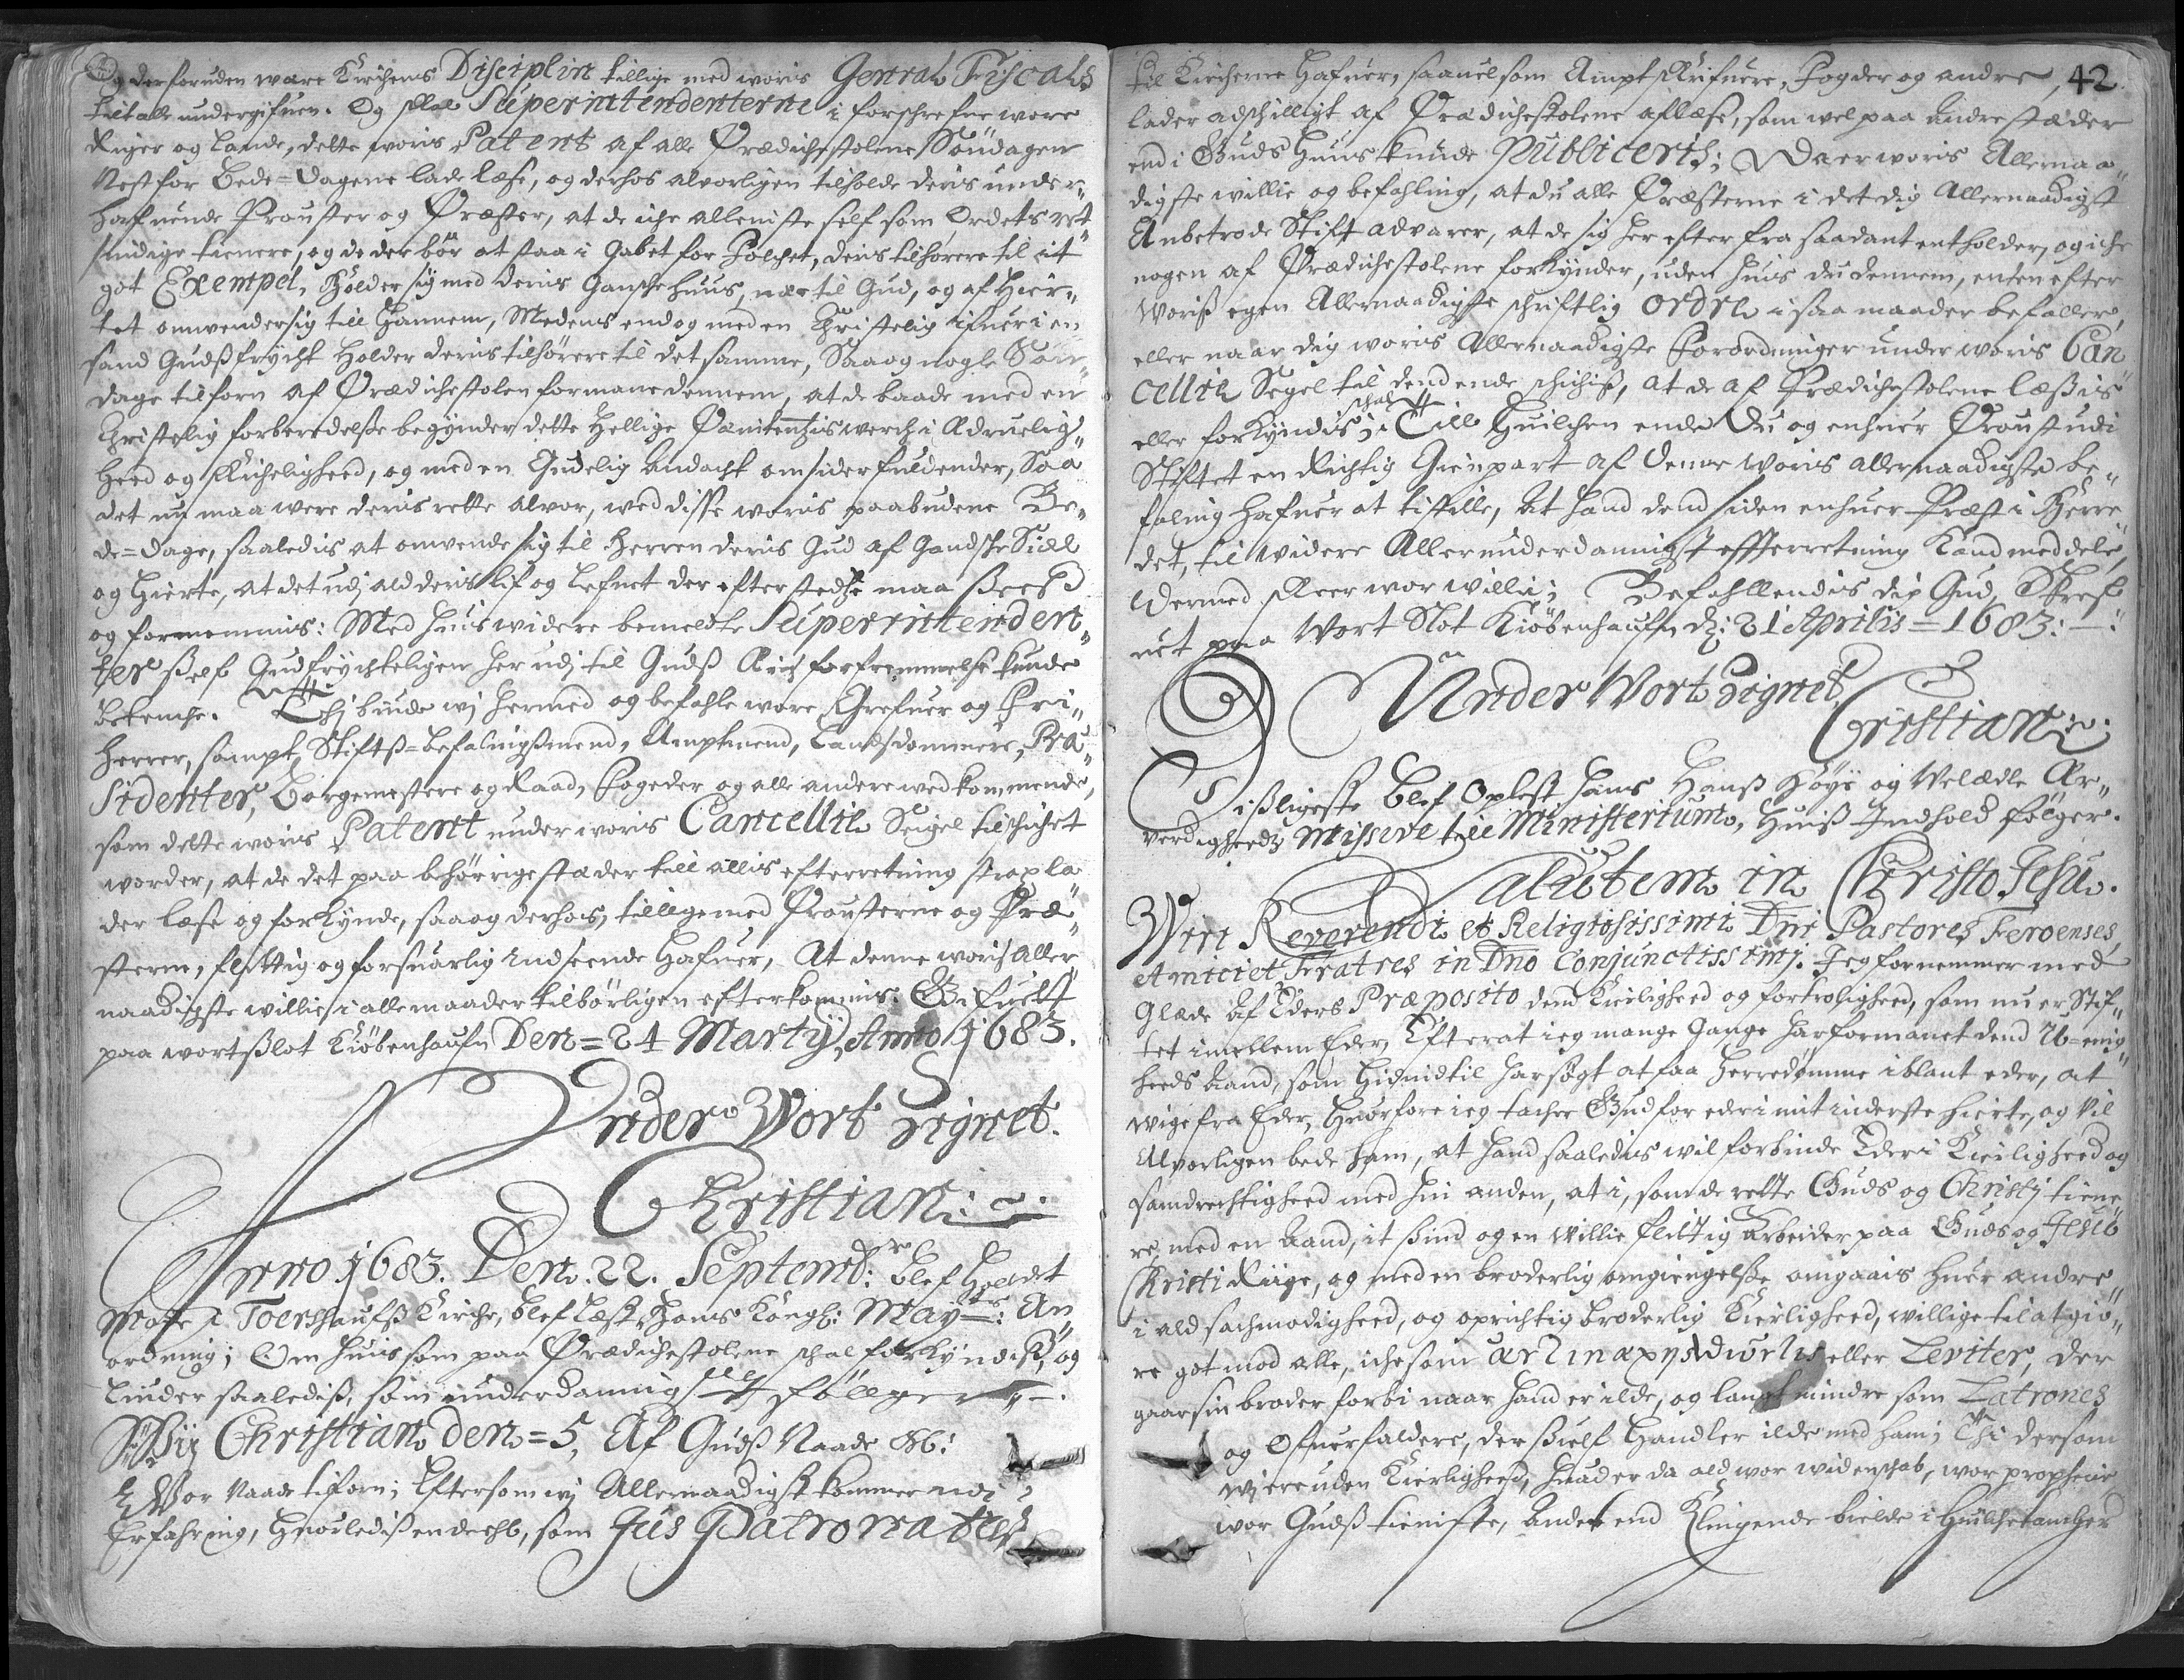 Og derforuden være Kirchens Disciplin tillige med woris General Fiscals
tiltale undergifuen. Og skal Superintendenterne i forschrefne wore
Riger og Lande, dette woris Patent af alle Prædichestolene Søndagen
Nest for Bede=Dagene lade læse, og derhos alvorligen tilholde deris under„
hafuende Prouster og Præster, at de iche alleniste self som Ordets ret„
sindige tienere, og de der bør at staa i Gabet for Folchet, deris tilhørere til it
got Exempel, Holder sig med deris Gansche huus, nær til Gud, og af Hier„
tet omvender sig till Hannem, Medens endog med en Christelig ifuer i en
sand Gudsfrycht holder deris tilhørere til det samme, Saa og nogle Søn„
dage tilforn af Prædichestolen formane dennem, at de baade med en
Christelig forberedelse begynder dette Hellige Pænitentzis werch i Ædruelig„
heed og Skicheligheed, og med en Gudelig Andacht omsider fuldender, Saa
det nu maa were deris rette alvor, wed disse woris paabudene Be„
de=Dage, saaledis at omvende sig til Herren deris Gud af Gandsche Siæl
og Hierte, at det udj ald deris lif og lefnet der efter stedtze maa sees
og fornemmis: Med huis widere bemeldte Superintenden„
ter self Gudfrychteligen her udj til Guds Æris forfremmelse kunde
betenche. Thj biude wj hermed og befahle wore Grefuer og Fri„
herrer, sampt Stiftss=befalingsmend, Amptmend, Landsdommere, Præ„
sidenter, Borgemestere og Raad, Fogeder og alle andere wedkommende,
som dette woris Patent under woris Cancellie Seigel tilschichet
worder, at de det paa behørrige stæder till allis efterretning strax la
der læse og forkynde, saa og derhos, tillige med Prousterne og Præ„
sterne, flittig og forsuarlig indseende hafuer, At denne woris Aller„
naadigste willie i alle maader tilbørligen efterkommis. Gifuet
paa wort Slot Kiøbenhaufn Den=24 Martij, Anno 1683.
Under Wort Zignet.
Christian:
Anno 1683. Den. 22. Septembr: blef holdet
Møte i Toershaufs Kirche, blef læst Hans Kongl: Mayts: An„
ordning; Om huis som paa Prædichestolene schal forkyndis, og
liuder saaledis, som underdannigst følger
Wij Christian den=5, Af Guds Naade &c:
Wor Naade tilforn; Eftersom wj Allernaadigst kommer udi
Erfahring, Huorledis en deehl, som Jus Patronatus
42.
til Kircherne hafuer, saauelsom Amptskrifuere, Fogder og andre
lader adschilligt af Prædichestolene aflæse, som wel paa andre stæder
end i Guds Huus kunde Publiceris; Da er woris Allernaa„
digste willie og befahling, at du alle Præsterne i det dig Allernaadigst
Anbetrode Stift advarer, at de sig her efter fra saadant entholder, og iche
nogen af Prædichestolene forkynder, uden huis du dennem, enten efter
Woris egen Allernaadigste schriftlig Ordre i saa maader befaller,
eller naar dig woris Allernaadigste Forordninger under woris Can
cellie Segel til dend ende schichis, at de af Prædichestolene læsis
eller forkyndis schal; Till Huilchen ende Du og enhuer Proust udi
Stiftet en Richtig Gienpart af Denne Woris allernaadigste be„
faling hafuer at tistille, At hand dend siden enhuer Præst i Herre
det, til widere Allerunderdannigst effterretning kand meddele,
Dermed skeer wor willie; Befahllendis dig Gud. Skref
uet paa Wort Slot Kiøbenhaufn d: 21 Aprilis=1683:
Under Wort Zignet
Cristian:
Dissligeste blef Oplest Hans Høys og Velædle Ær„
verdigheeds Missive till Ministerium, Huis Indhold følger.
Salutem in Christo Jesu.
Viri Reverendi et Religiosissimi Dni Pastores Feroenses,
Amici et Fratres in Dno Conjunctissimj. Jeg fornemmer med
Glæde af Eders Præposito dend Kierligheed og fortroligheed, som nu er Stif„
tet imellem Eder, Efterat ieg mange Gange har formanet dend U=enig„
heeds Aand, som hidindtil har søgt at faa Herredømme iblant eder, at
wige fra Eder, Huorfore ieg tacher Gud for eder i mit inderste hierte, og Vil
Alvorligen bede ham, at Hand saaledis wil forbinde Eder i Kierligheed og
samdrechtigheed med hin anden, at i, som de rette Guds og Christj tiene
re, med en Aand, it Sind og en Willie flittig Arbeider paa Guds og Jesu
Christi Riige, og med en broderlig omgiengelse, omgaais huer andre„
i ald sachmodigheed, og oprichtig broderlig Kierligheed, willige til at giø„
re got mod alle, iche som eller Leviter, der
gaar sin broder forbi naar Hand er ilde, og langt mindre som Latrones
og Ofuerfaldere, der sielf Handler ilde med ham; Thi dersom
wj ere uden Kierligheed, huad er da ald wor widenschab, wor prophetie,
wor Guds tieniste, Andet end Klingende bielde i